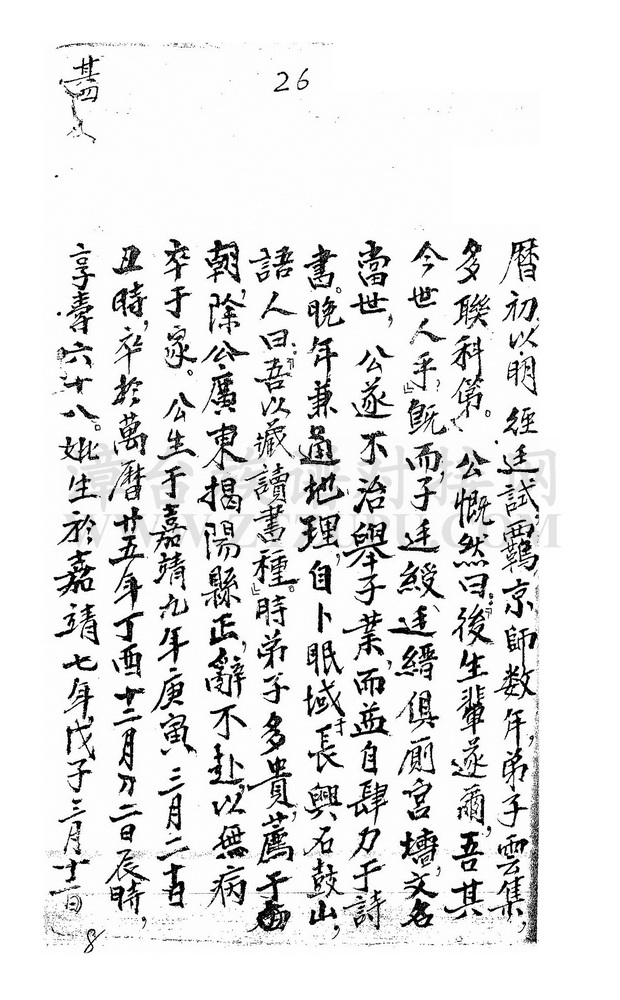 26
曆初以明經廷試羈京師数年,弟子雲集,
多聯科第。公慨然曰:「後生輩遂爾,吾其
今世人乎,」既而,子廷綬廷縉俱廁宮墻,文名
當世,公遂不治舉子業,而益自肆力于詩
書。晚年兼通地理,自卜眠域于長興石鼓山,
語人曰:「吾以藏讀書種。」時弟子多貴,薦于
朝,除公廣東揭陽縣正,辭不赴,以無病
卒于家。公生于嘉靖九年庚寅三月二十日
丑時,卒於萬曆廿五年丁酉十二月初二日辰時,
享壽六十八。妣生於嘉靖七年戊子三月十一日
8